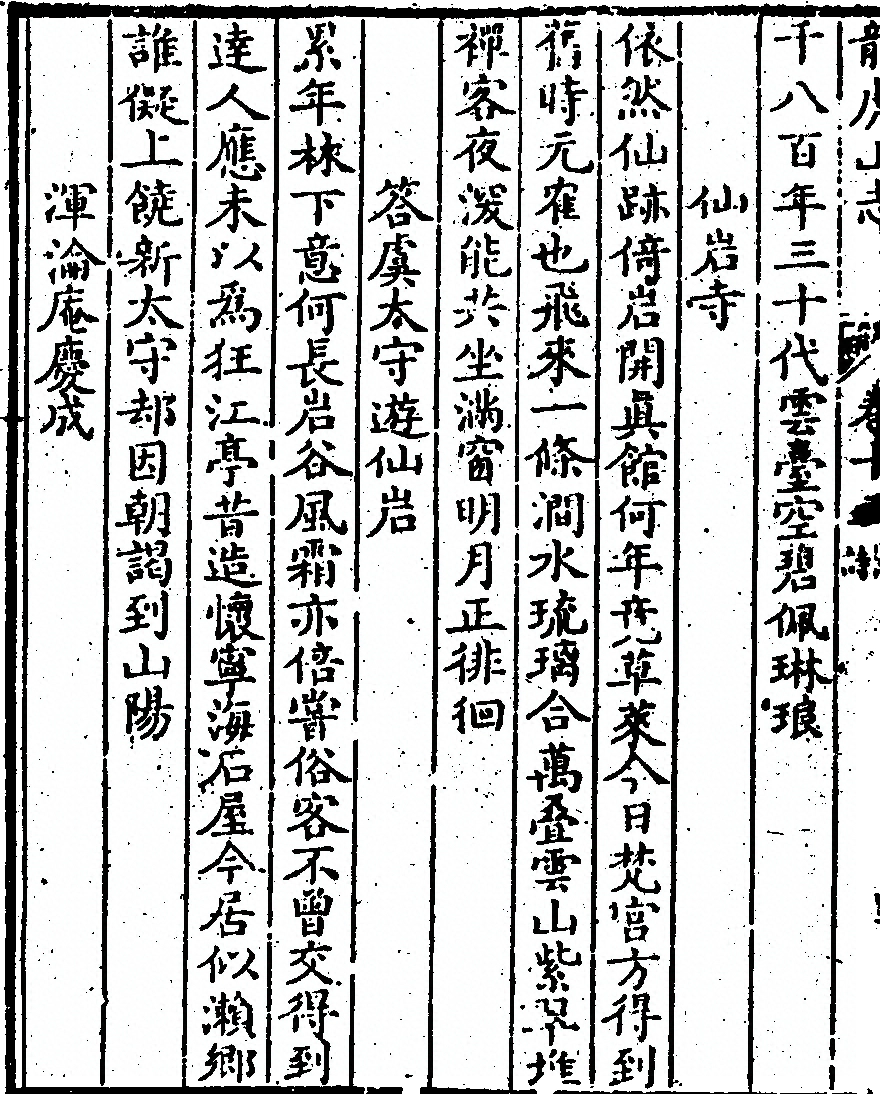 龍虎山志
千八百年三十代雲臺空碧佩琳琅
仙岩寺
依然仙跡倚岩開眞館何年庇草萊今日梵宮方得到
舊時元寉也飛來一條澗水琉璃合萬叠雲山紫翠堆
禪客夜深能共坐滿窗明月正徘徊
答虞太守遊仙岩
累年林下意何長岩谷風霜亦倍嘗俗客不曾交得到
達人應未以爲狂江亭昔造懷寧海石屋今居似瀨鄉
誰儗上饒新太守却因朝謁到山陽
渾淪庵慶成